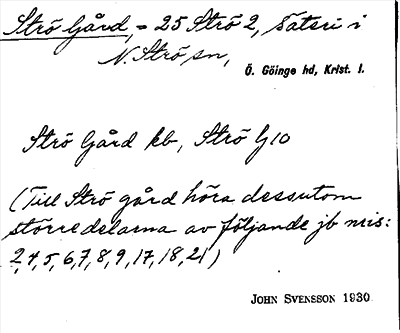 Strö Gård, = 25 Strö 2, säteri i
N. Strö sn,
Ö. Göinge hd, Krist. l.
Strö Gård kb, Strö G 10
(Till Strö gård höra dessutom
större delarna av följande jb nris:
2, 4, 5, 6, 7, 8, 9, 17, 18, 21)
JOHN SVENSSON 1930